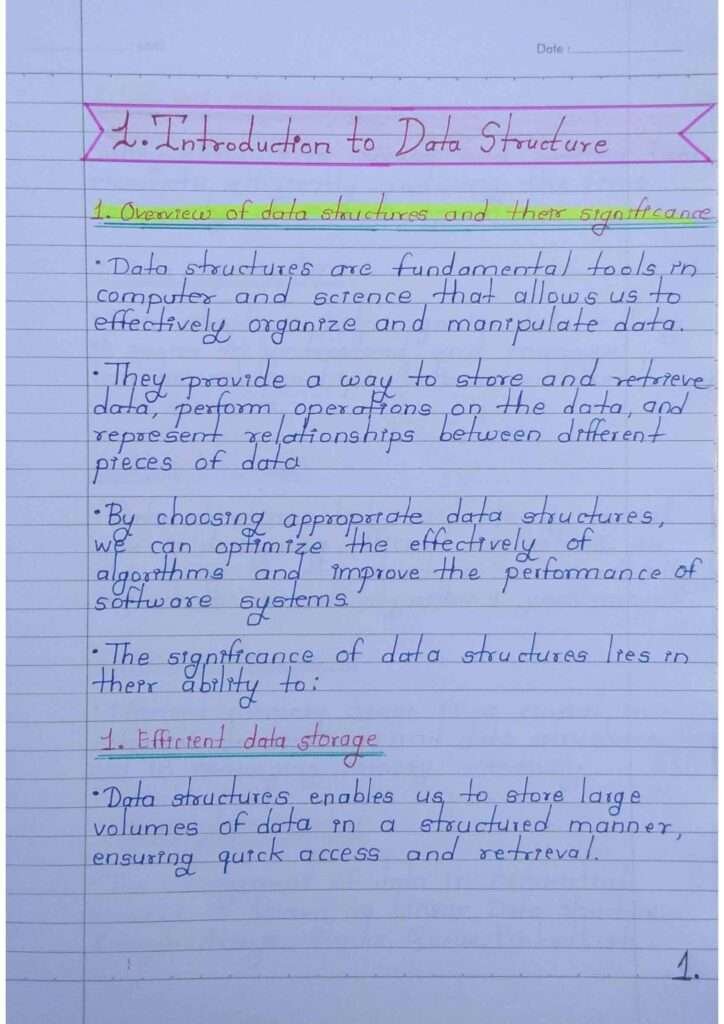 Date :
1. Introduction to Data Structure
1. Overview of data structures and their significance
• Data structures are fundamental tools in
computer and science that allows us to
effectively organize and manipulate data.
• They provide a way to store and retrieve
data, perform operations on the data, and
represent relationships between different
pieces of data
• By choosing appropriate data structures,
we can optimize the effectively of
algorithms and improve the performance of
software systems
• The significance of data structures lies in
their ability to:
1. Efficient data storage
• Data structures enables us to store large
volumes of data in a structured manner,
ensuring quick access and retrieval.
1.